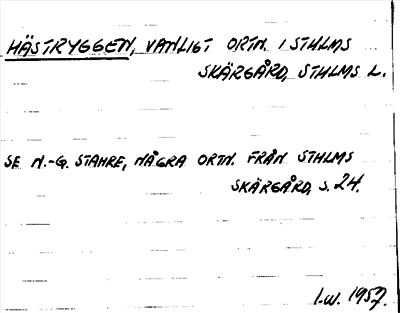 HÄSTRYGGEN, VANLIGT ORTN. I STHLMS
SKÄRGÅRD, STHLMS L.
SE N.-G. STAHRE, NÅGRA ORTN. FRÅN STHLMS
SKÄRGÅRD, S. 24.
I.W. 1957.